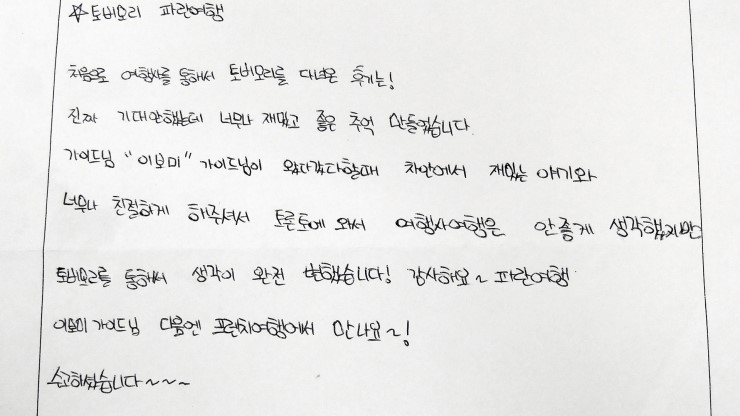 ☆토버모리 파란여행
처음으로 여행사를 통해서 토버모리를 다녀온 후기는!
진짜 기대안했는데 너무나 재밌고 좋은 추억 만들었습니다.
가이드님 "이보미" 가이드님이 왔다갔다할때 차안에서 재밌는 얘기와
너무나 친절하게 해주셔서 토론토에 와서 여행사여행은 안좋게 생각했지만
토버모리를 통해서 생각이 완전 변했습니다! 감사해요~ 파란여행
이보미 가이드님 다음엔 프렌치여행에서 만나요~!
수고하셨습니다~~~